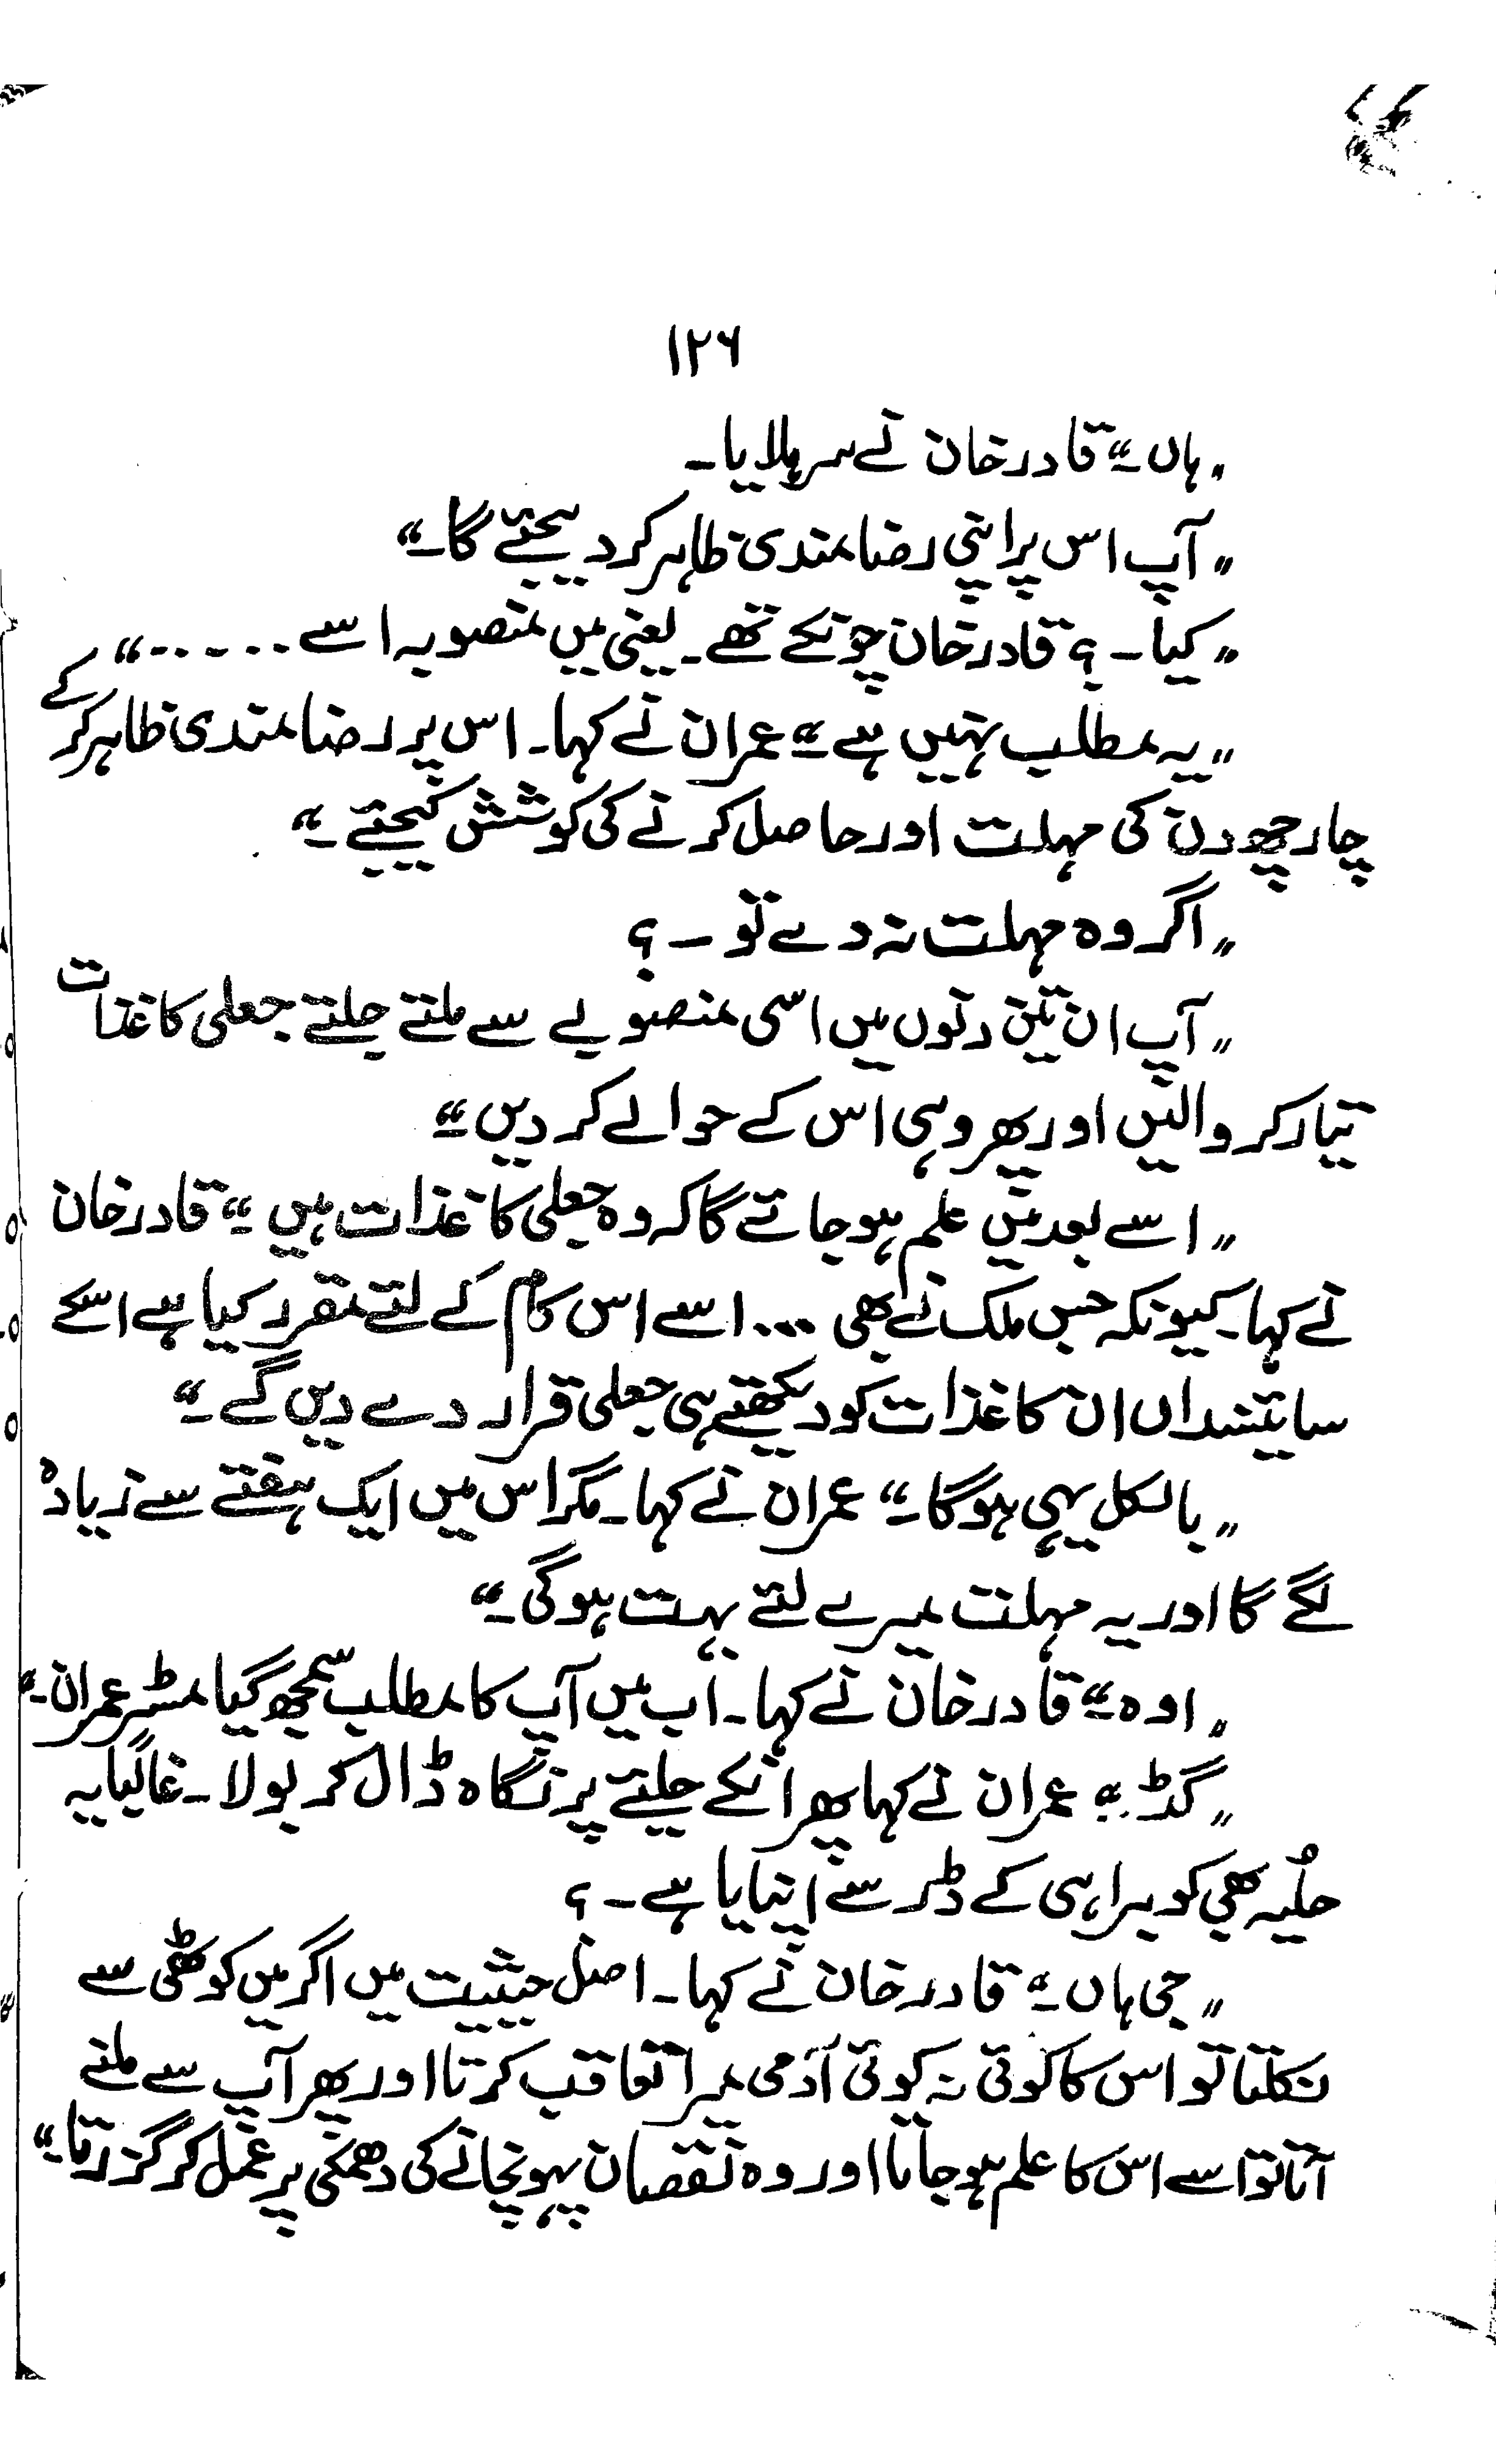 ۱۲۶
"ہاں۔" قادر خان نے سر ہلایا۔
"آپ اس پر اپنی رضا مندی ظاہر کر دیجئے گا۔"
"کیا۔؟ قادر خان چونکے تھے۔ یعنی میں منصوبہ اسے ......"
"یہ مطلب نہیں ہے۔" عمران نے کہا۔ اس پر رضا مندی ظاہر کر کے
چار چھ دن کی مہلت اور حاصل کرنے کی کوشش کیجئے۔"
"اگر وہ مہلت نہ دے تو۔؟
"آپ ان تین دنوں میں اسی منصوبے سے ملتے جلتے جعلی کاغذات
تیار کروالیں اور پھر وہی اس کے حوالے کر دیں۔"
"اسے بعد میں علم ہو جائے گا کہ وہ جعلی کاغذات ہیں۔" قادر خان
نے کہا۔ کیونکہ جس ملک نے بھی ... اسے اس کام کے لئے مقرر کیا ہے اسکے
سائنسداں ان کاغذات کو دیکھتے ہی جعلی قرار دے دیں گے۔"
"بالکل یہی ہوگا۔" عمران نے کہا۔ مگر اس میں ایک ہفتے سے زیادہ
لگے گا اور یہ مہلت میرے لئے بہت ہوگی۔"
"اوہ۔" قادر خان نے کہا۔ اب میں آپ کا مطلب سمجھ گیا مسٹر عمران۔"
"گڈ۔" عمران نے کہا پھر انکے حلیئے پر نگاہ ڈال کر بولا۔ غالباً یہ
حلُیہ بھی کوبرا ہی کے ڈر سے اپنایا ہے۔؟
"جی ہاں۔" قادر خان نے کہا۔ اصل حیثیت میں اگر میں کوٹھی سے
نکلتا تو اس کا کوئی نہ کوئی آدمی میرا تعاقب کرتا اور پھر آپ سے ملنے
آتا تو اسے اس کا علم ہو جاتا اور وہ نقصان پہونچانے کی دھمکی پر عمل کر گزرتا۔"